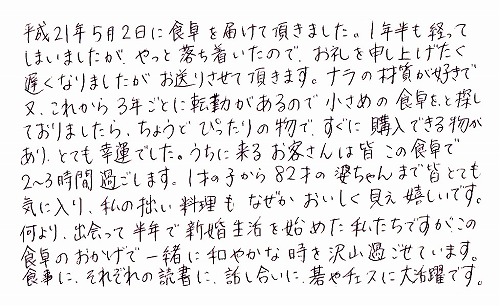 平成21年5月2日に食卓を届けて頂きました。1年半も経って
しまいましたが、やっと落ち着いたので、お礼を申し上げたく
遅くなりましたがお送りさせて頂きます。ナラの材質が好きで
又、これから3年ごとに転勤があるので小さめの食卓を、と探し
ておりましたら、ちょうどぴったりの物で、すぐに購入できる物が
あり、とても幸運でした。うちに来るお客さんは皆この食卓で
2〜3時間過ごします。1才の子から82才の婆ちゃんまで皆とても
気に入り、私の拙い料理もなぜかおいしく見え嬉しいです。
何より、出会って半年で新婚生活を始めた私たちですが、この
食卓のおかげで一緒に和やかな時を沢山過ごせています。
食事に、それぞれの読書に、話し合いに、碁やチェスに大活躍です。